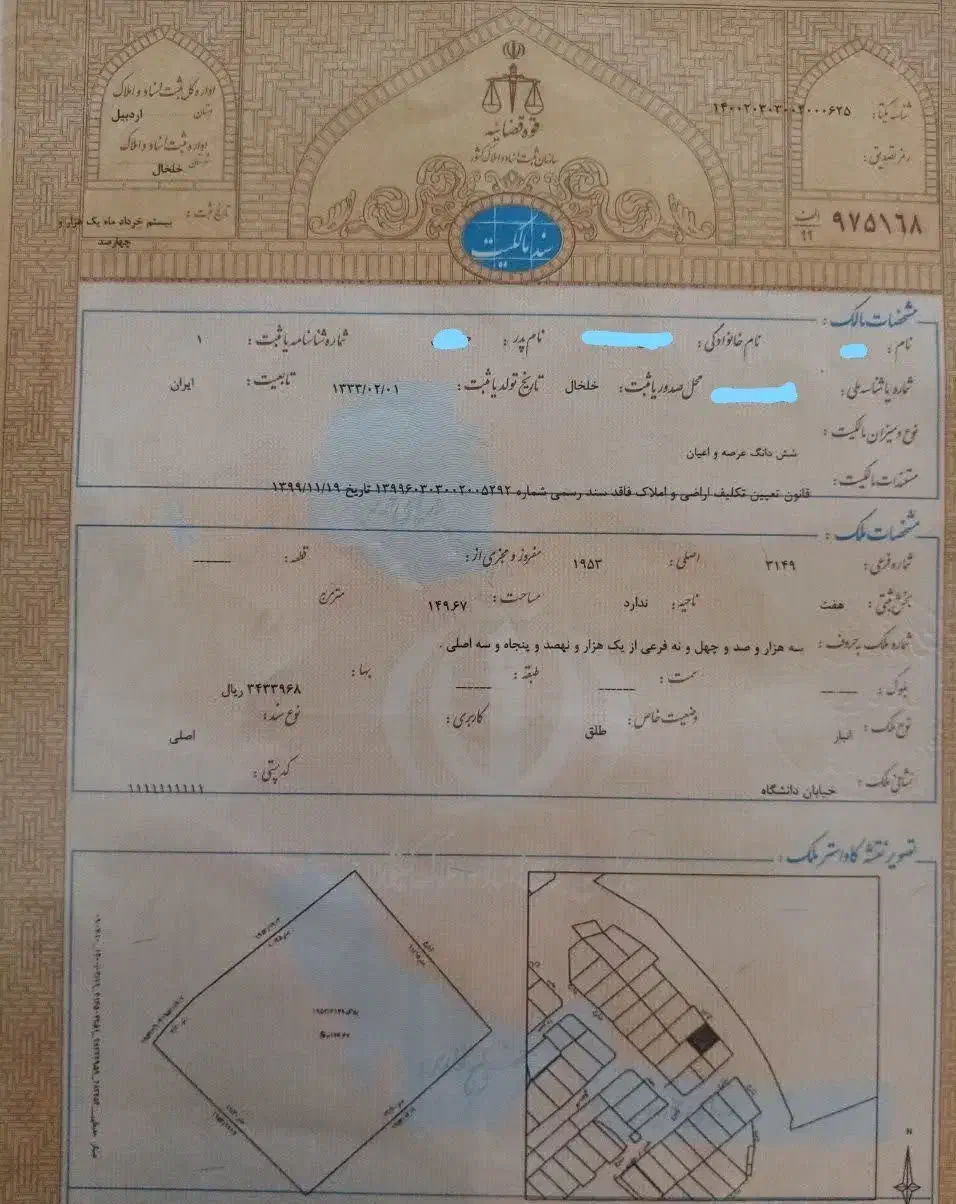 اداره کل ثبت اسناد و املاک
استان اردبیل
اداره ثبت اسناد و املاک
شهرستان خلخال
تاریخ ثبت: بیستم خرداد ماه یک هزار و
چهارصد
قوه قضائیه
سازمان ثبت اسناد و املاک کشور
سند مالکیت
شناسه یکتا: ۱۴۰۰۲۰۳۰۳۰۰۲۰۰۰۶۲۵
رمز تصدیق:
۹۷۵۱۶۸ الف ۹۹
مشخصات مالک:
نام: نام خانوادگی: نام پدر: شماره شناسنامه یا ثبت: ۱
شماره یا شناسه ملی: محل صدور یا ثبت: خلخال تاریخ تولد یا ثبت: ۱۳۳۳/۰۲/۰۱ تابعیت: ایران
نوع و میزان مالکیت:
شش دانگ عرصه و اعیان
مستندات مالکیت:
قانون تعیین تکلیف اراضی و املاک فاقد سند رسمی شماره ۱۳۹۹۶۰۳۰۳۰۰۲۰۰۵۲۹۲ تاریخ ۱۳۹۹/۱۱/۱۹
مشخصات ملک:
شماره فرعی: ۳۱۴۹ اصلی: ۱۹۵۳ مفروز و مجزی از: قطعه: -----
بخش ثبتی: هفت ناحیه: ندارد مساحت: ۱۴۹.۶۷ مترمربع
شماره ملک به حروف: سه هزار و صد و چهل و نه فرعی از یک هزار و نهصد و پنجاه و سه اصلی .
بلوک: ----- سمت: ----- طبقه: ----- بها: ۳۴۳۳۹۶۸ ریال
نوع ملک: انبار وضعیت خاص: طلق کاربری: نوع سند: اصلی
نشانی ملک: خیابان دانشگاه کد پستی: ۱۱۱۱۱۱۱۱۱۱
تصویر نقشه کاداستر ملک:
N